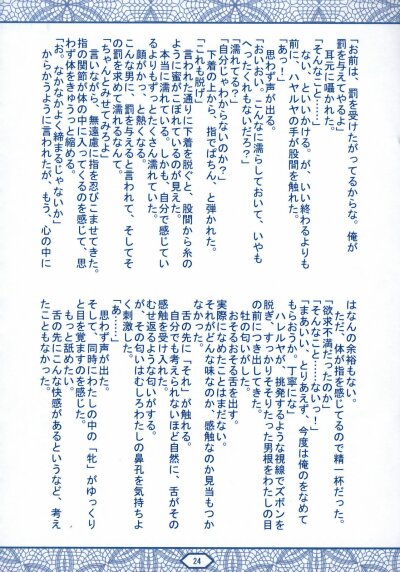 「お前は、罰を受けたがってるからな。俺が
罰を与えてやるよ」
耳元に囁かれた。
「そんなこと……」
ない、といいかける。が、いい終わるよりも
前に、ハレルヤの手が股間を触れた。
「あっ！」
思わず声が出る。
「おいおい。こんなに濡らしておいて、いやも
へったくれもないだろ？」
「濡れてる？」
「自分じゃわからないのか？」
下着の上から、指でぱちん、と弾かれた。
「これも脱げ」
言われた通りに下着を脱ぐと、股間から糸の
ように蜜がこぼれているのが見えた。
本当に濡れている。しかも、自分で感じてい
るよりもずっとたくさん濡れていた。
顔がかっ、と熱くなる。
こんな男に、罰を与えると言われて、そしてそ
の罰を求めて濡れるなんて。
「ちゃんとみせてみろよ」
言いながら、無遠慮に指を忍びこませてきた。
指の関節が体の中に入ってくるのを感じて、思
わず体をきゅうっと縮める。
「お。なかなかよく締まるじゃないか」
からかうように言われたが、もう、心の中に
はなんの余裕もない。
ただ、体が指を感じてるので精一杯だった。
「欲求不満だったのか」
「そんなこと……ないっ！」
「まあいい、とりあえず、今度は俺のをなめて
もらおうか。丁寧にな」
ハレルヤが、挑発するような視線でズボンを
脱ぎ、すっかりそそりたった男根をわたしの目
の前につき出してきた。
牡の匂いがした。
おそるおそる舌を出す。
実際になめたことはまだない。
それがどんな味なのか、感触なのか見当もつか
なかった。
舌の先に「それ」が触れる。
自分でも考えられないほど自然に、舌がその
感触を受け入れた。
むせ返るような匂いがする。
が、その匂いはむしろわたしの鼻孔を気持ちよ
く刺激した。
「あ……」
思わず声が出た。
そして、同時にわたしの中の「牝」がゆっくり
と目を覚ますのを感じた。
もっと舐めたい。
舌の先にこんな快感があるというなど、考え
たこともなかった。
24